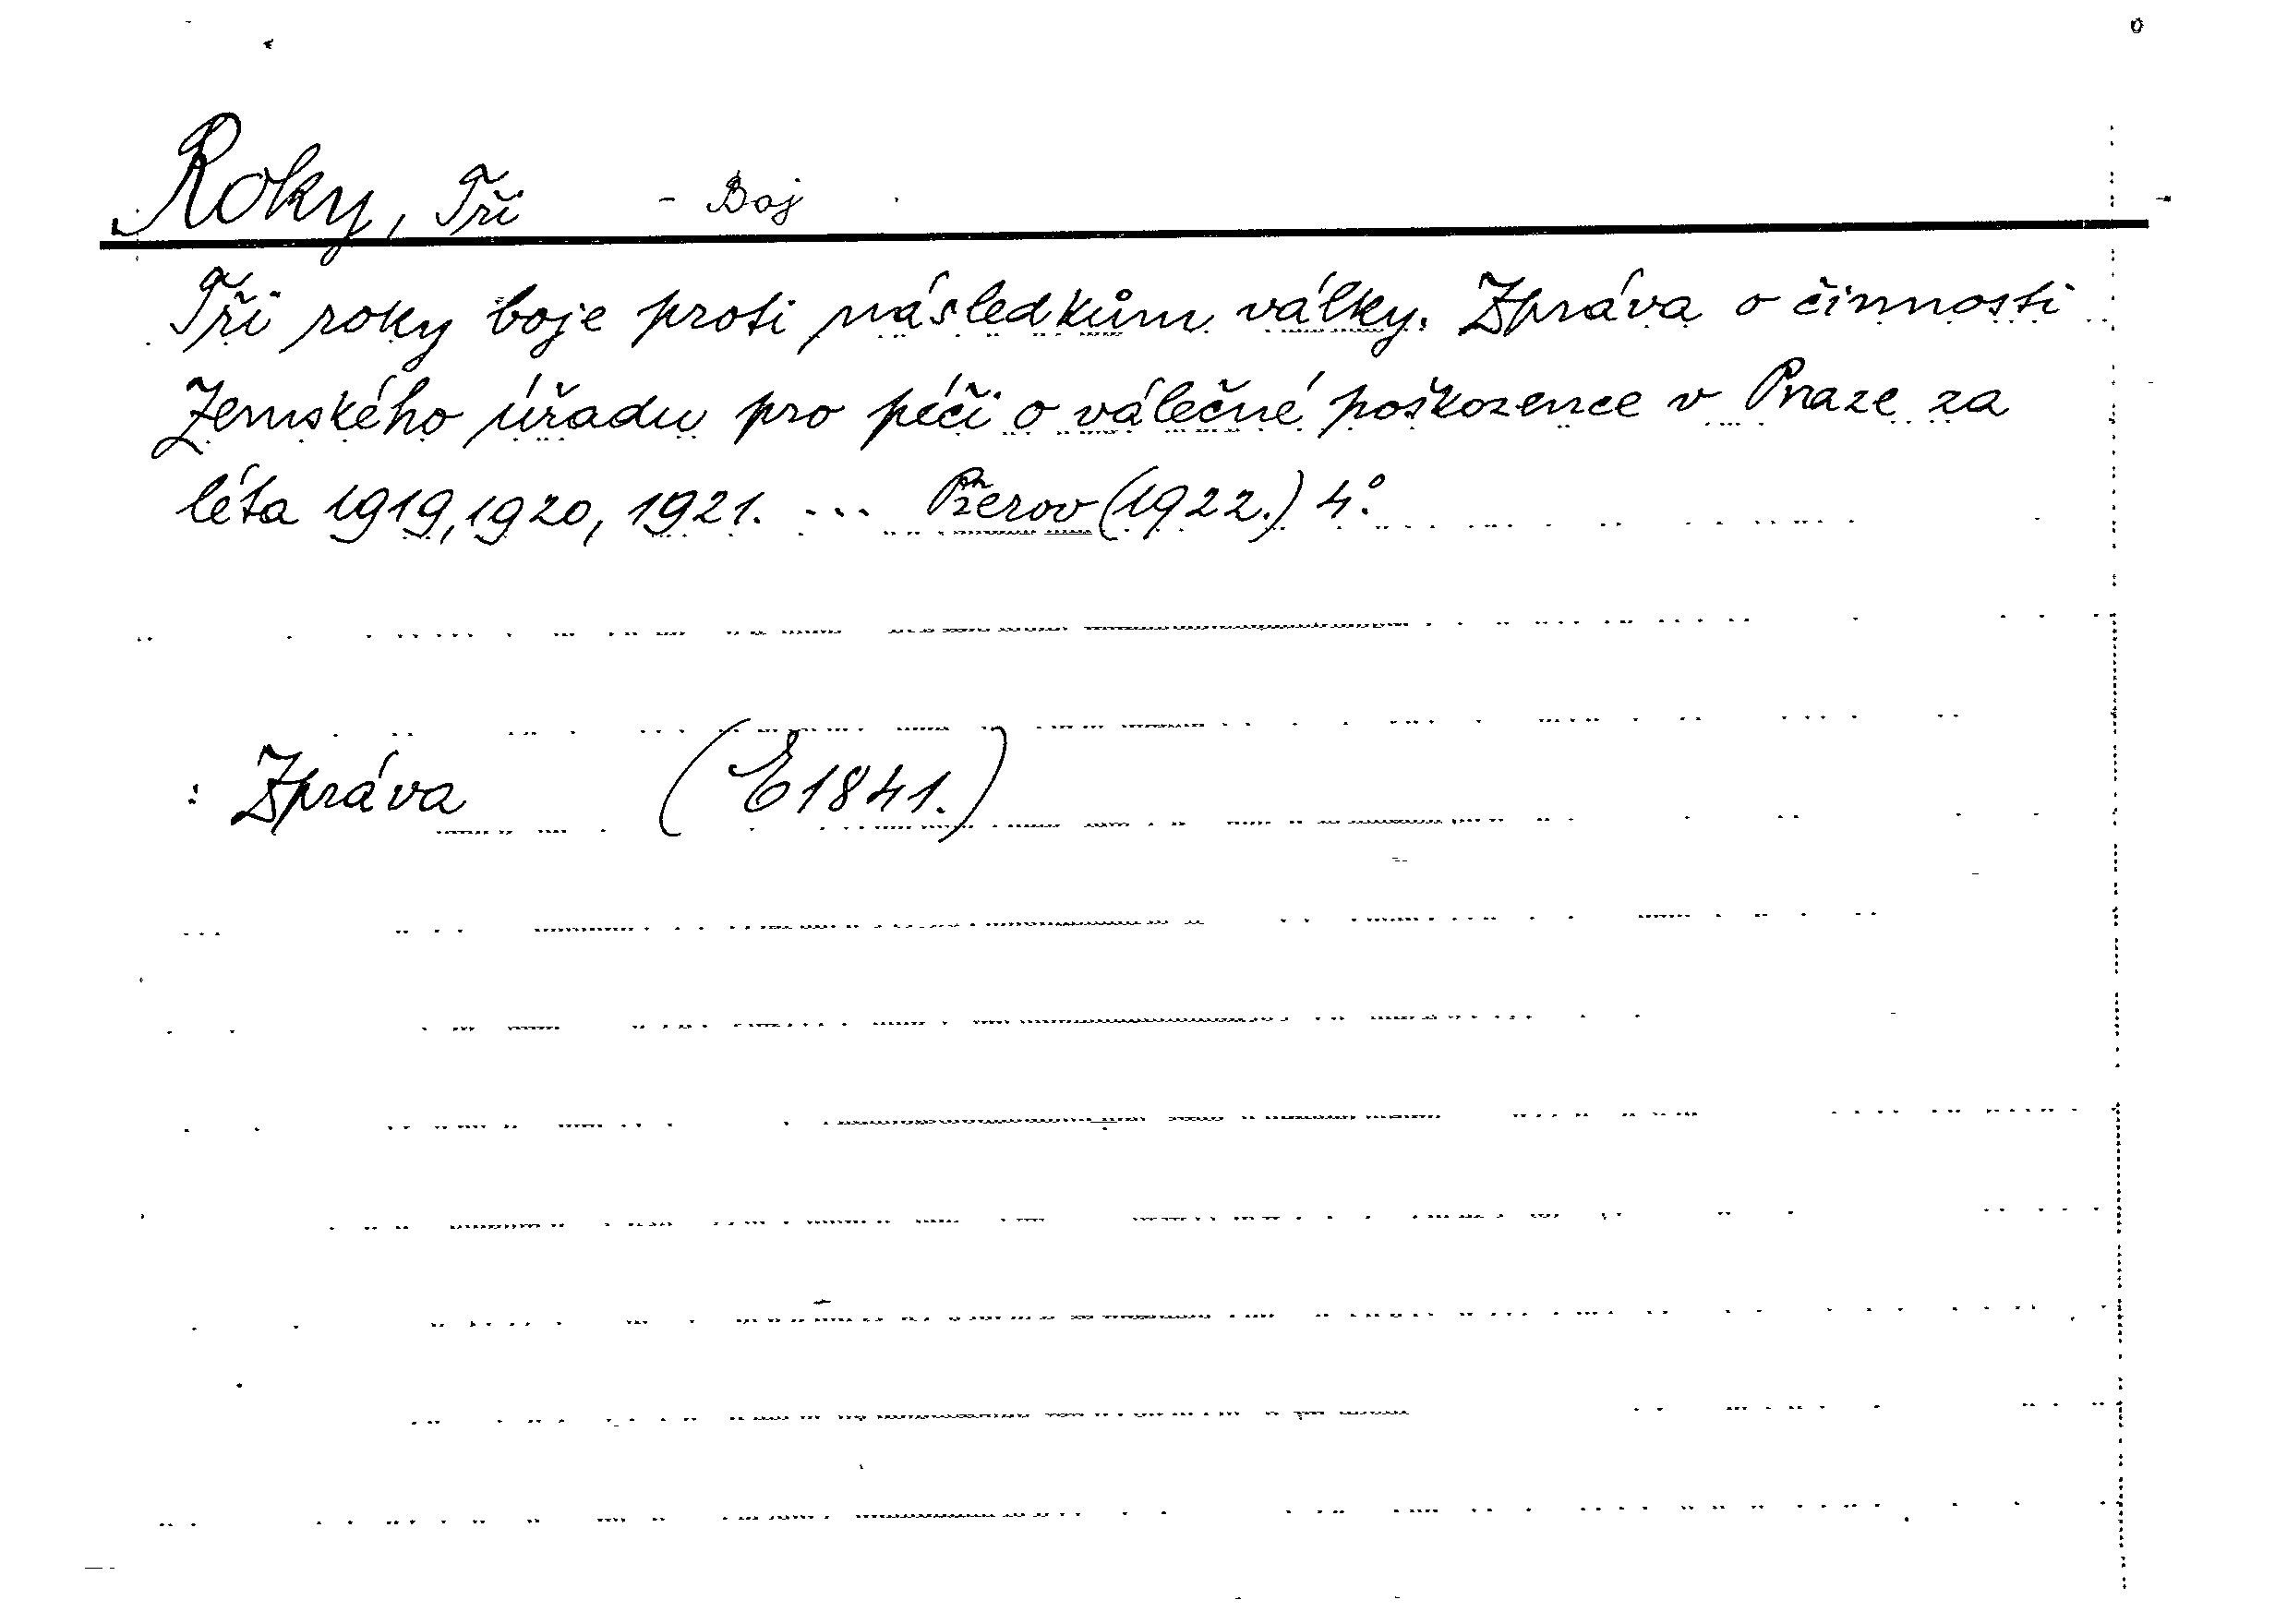 Roky, Tři - Boj
Tři roky boje proti následkům války. Zpráva o činnosti
Zemského úřadu pro péči o válečné poškozence v Praze za
léta 1919, 1920, 1921. ... Přerov (1922.) 4°.
: Zpráva (E1841.)